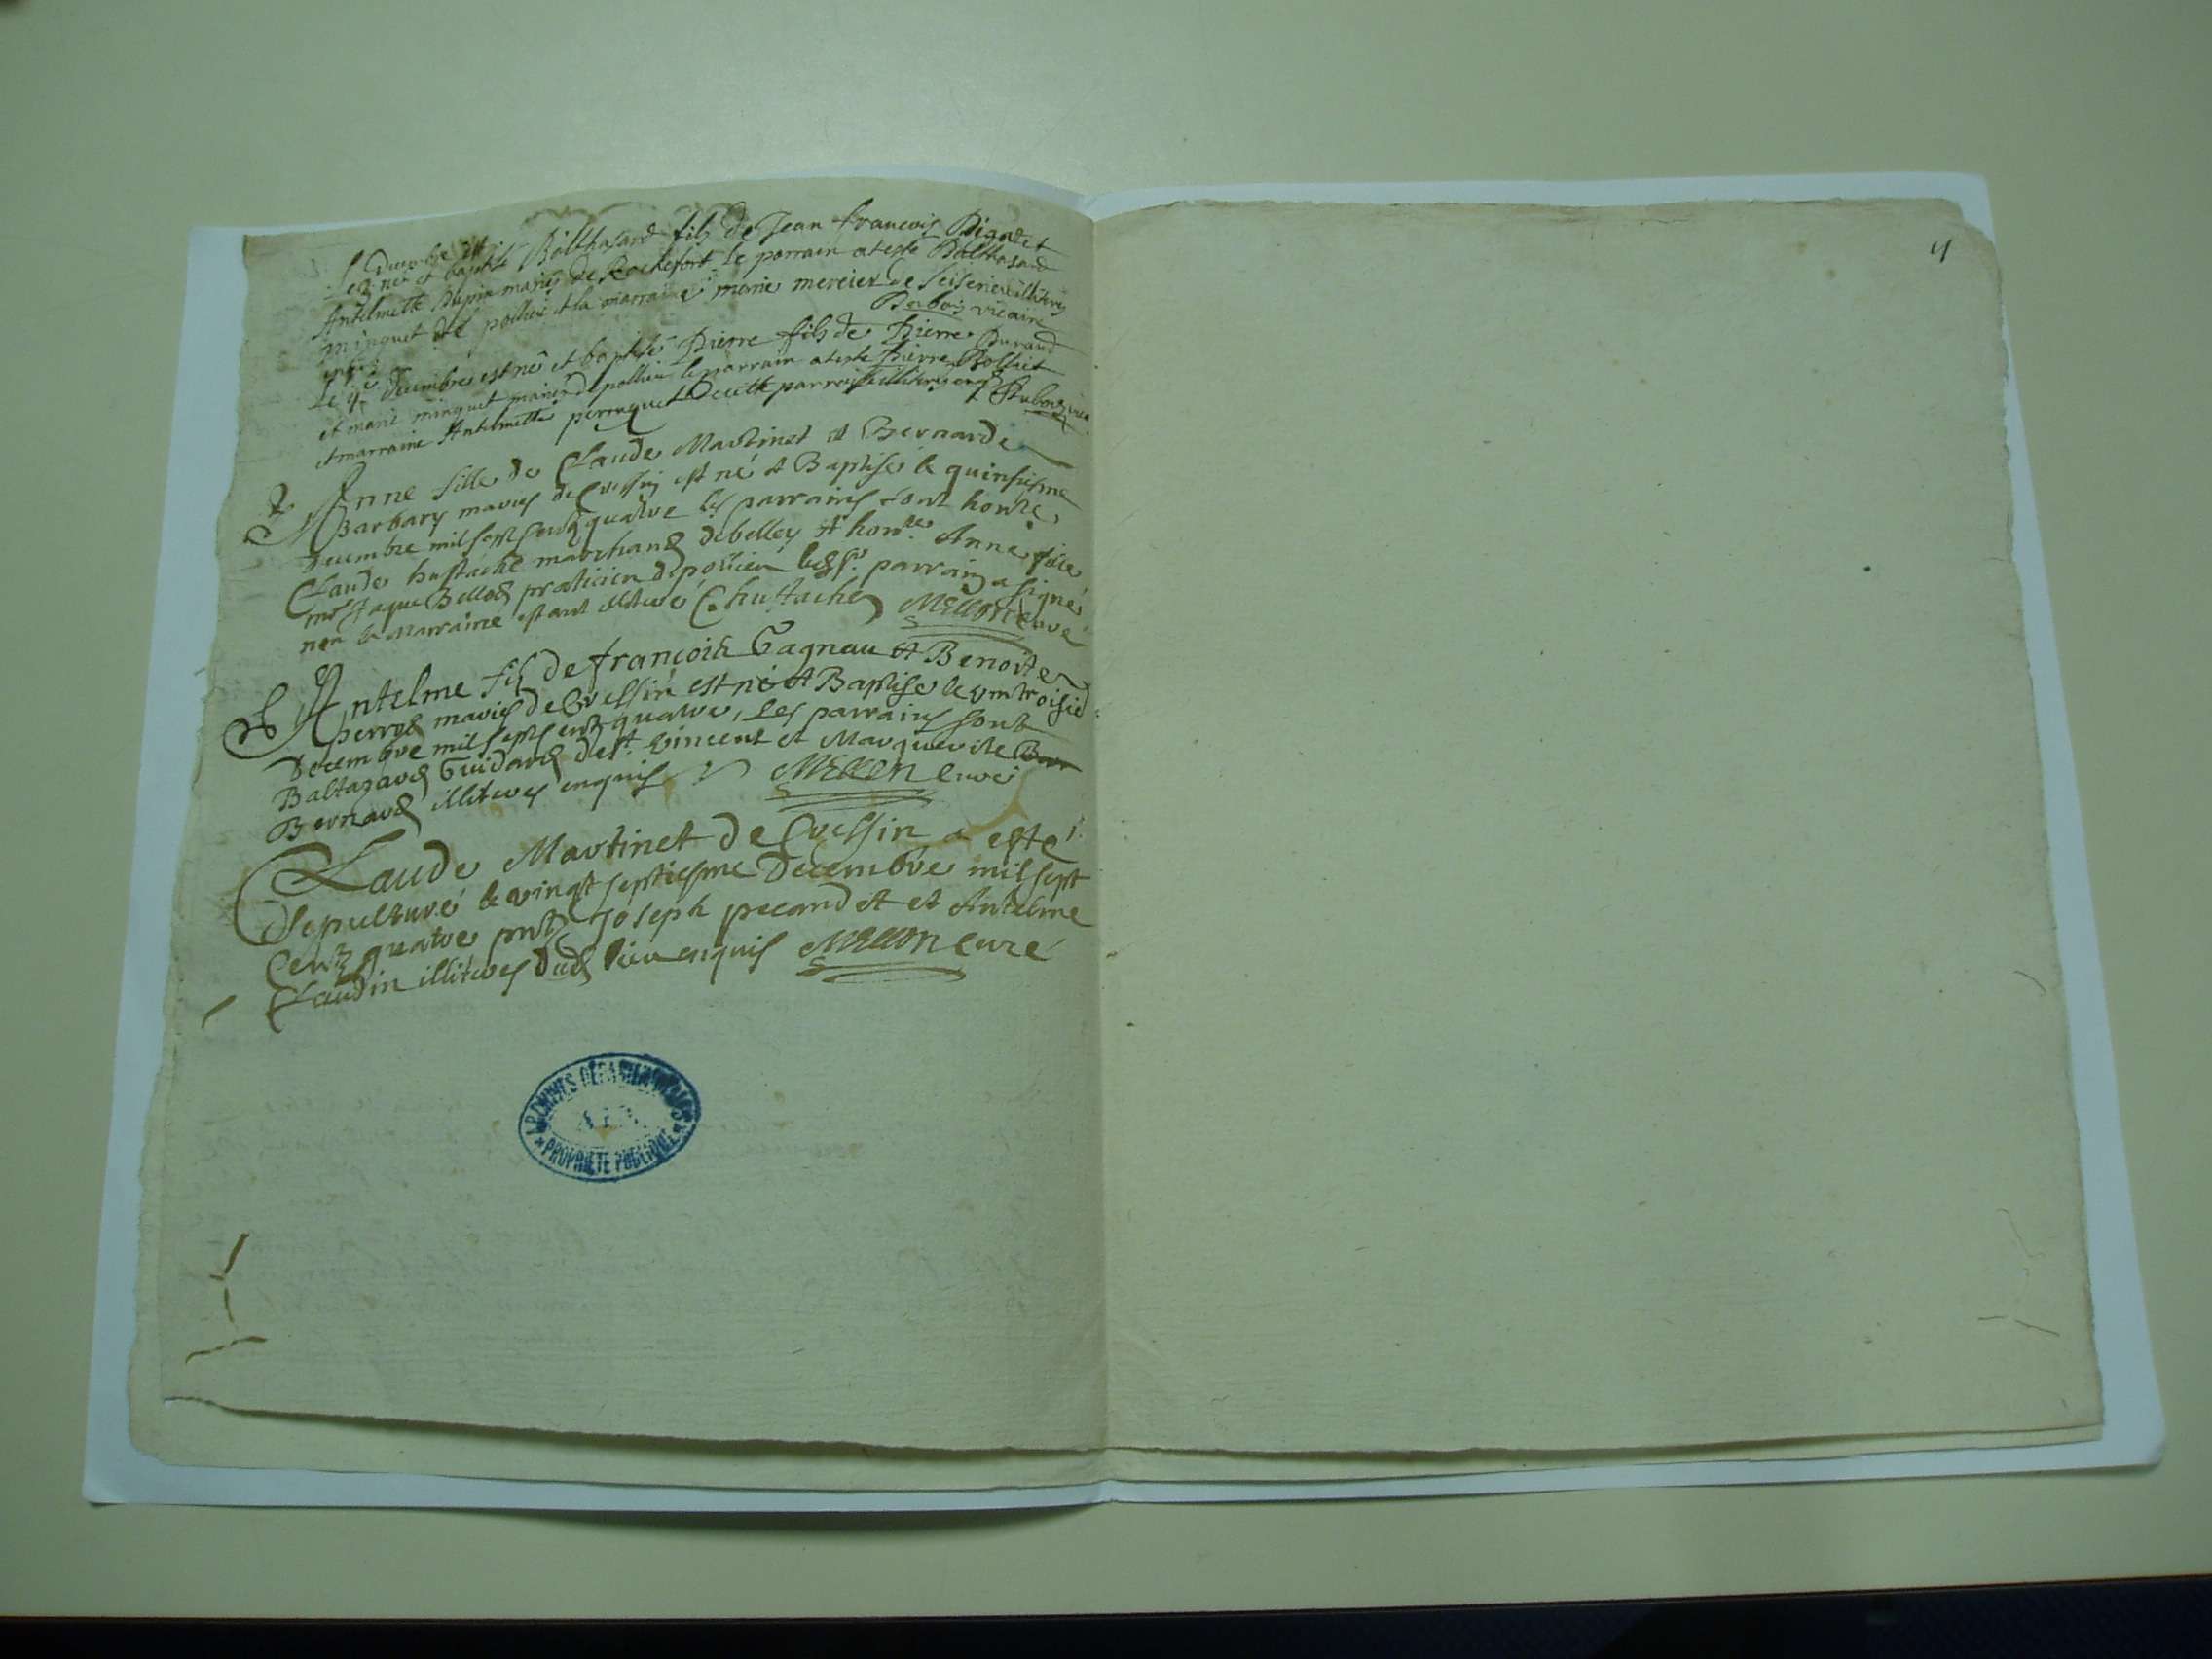 Decembre est
né et baptisé Balthasard fils de Jean francois Pignet
Antelmette Dupin mariés de Rochefort le parrain a esté Balthasard
minguet de pollieu et la marraine marie mercier de illiterés
enquis Dubois vicaire
Le 9e decembre est né et baptisé Pierre fils de Pierre Durand
et marie minguet mariés de pollieu le parrain a esté Pierre
et marraine Antelmette perruquet de cette parroisse illiterés enqs Dubois vica
Anne fille de Claude Martinet et Bernarde
Barbary mariés de Cressin est né et Baptisé le quinsiesme
Decembre mil sept centz quatre les parrains sont honble
Claude hustache marchand de belley et honble Anne fille
mr Jaque Bellod praticien de pollieu led sr parrain a signé
non la Marraine estant illiteré C hustache MELLON curé
Antelme fils de françois Gagnau et Benoite
perrod mariés de Cressin est né et Baptisé le vintroisie
Decembre mil sept centz quatre, les parrains sont
Baltazard Guidard de st vincent et Marguerite
Bernard illiterés enquis MELLON curé
Claude Martinet de Cressin a esté
Sepulturé le vingt septiesme Decembre mil sept
Centz quatre pntz Joseph pecandet et Antelme
Claudin illiterés dud lieu enquis MELLON curé
ARCHIVES DÉPARTEMENTALES
AIN
PROPRIÉTÉ PUBLIQUE